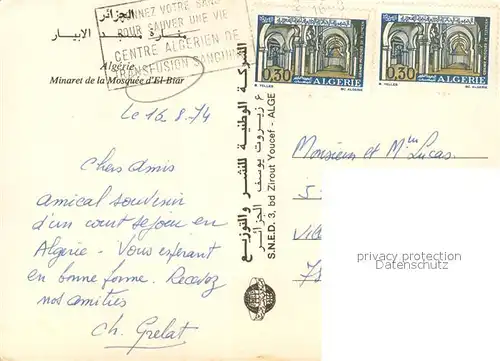 الجزائر
منارة مسجد الابيار
Algérie
Minaret de la Mosquée d'El-Biar
DONNEZ VOTRE SANG
POUR SAUVER UNE VIE
CENTRE ALGERIEN DE
TRANSFUSION SANGUINE
0,30 ALGERIE
0,30 ALGERIE
M. YELLES
M. YELLES
Le 16.8.74
Chers amis
amical souvenir
d'un court sejour en
Algerie - Vous espérant
en bonne forme. Recevez
nos amitiés
Ch. Grelat
الشركة الوطنية للنشر والتوزيع
3 زيروت يوسف الجزائر
S.N.E.D. 3, bd Zirout Youcef - ALGER
Monsieur et Mme Lucas
5
75
privacy protection
Datenschutz